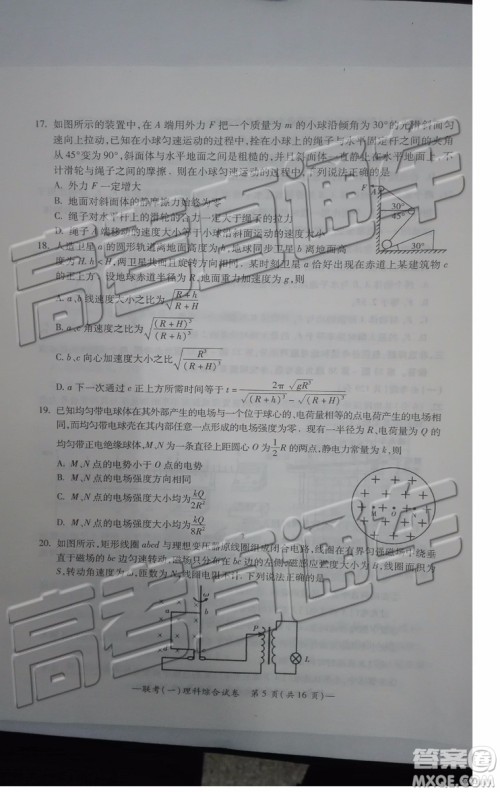 17. 如图所示的装置中,在 A 端用外力 F 把一个质量为 m 的小球沿倾角为 30°的光滑斜面匀
速向上拉动,已知在小球匀速运动的过程中,拴在小球上的绳子与水平固定杆之间的夹角
从 45°变为 90°,斜面体与水平地面之间是粗糙的,并且斜面体一直静止在水平地面上,不
计滑轮与绳子之间的摩擦.则在小球匀速运动的过程中,下列说法正确的是
A. 外力 F 一定增大
B. 地面对斜面体的静摩擦力始终为零
C. 绳子对水平杆上的滑轮的合力一定大于绳子的拉力
D. 绳子 A 端移动的速度大小等于小球沿斜面运动的速度大小
F A
30°
45°
30°
18. 人造卫星 a 的圆形轨道离地面高度为 h,地球同步卫星 b 离地面高
度为 H,h<H,两卫星共面且旋转方向相同.某时刻卫星 a 恰好出现在赤道上某建筑物 c
的正上方,设地球赤道半径为 R,地面重力加速度为 g,则
A. a、b 线速度大小之比为√((R+h)/(R+H))
B. a、c 角速度之比为√((R+H)³/(R+h)³)
C. b、c 向心加速度大小之比√(R³/(R+H)³)
D. a 下一次通过 c 正上方所需时间等于 t=2π√(gR³)/(√(R+h)³−√(R+H)³)
19. 已知均匀带电球体在其外部产生的电场与一个位于球心的、电荷量相等的点电荷产生的电场相
同,而均匀带电球壳在其内部任意一点形成的电场强度为零,现有一半径为 R、电荷量为 Q 的
均匀带正电绝缘球体,M、N 为一条直径上距圆心 O 为 1/2 R 的两点,静电力常量为 k,则
A. M、N 点的电势小于 O 点的电势
B. M、N 点的电场强度方向相同
C. M、N 点的电场强度大小均为 kQ/2R²
D. M、N 点的电场强度大小均为 kQ/8R²
M O N
20. 如图所示,矩形线圈 abcd 与理想变压器原线圈组成闭合电路,线圈在有界匀强磁场中绕垂
直于磁场的 bc 边匀速转动,磁场只分布在 bc 边的左侧,磁感应强度大小为 B,线圈面积为
S,转动角速度为 ω,匝数为 N,线圈电阻不计.下列说法正确的是
b
P
L
—联考(一)理科综合试卷 第 5 页(共 16 页)—
高考直通车
高考直通车
答案圈
MXQE.COM